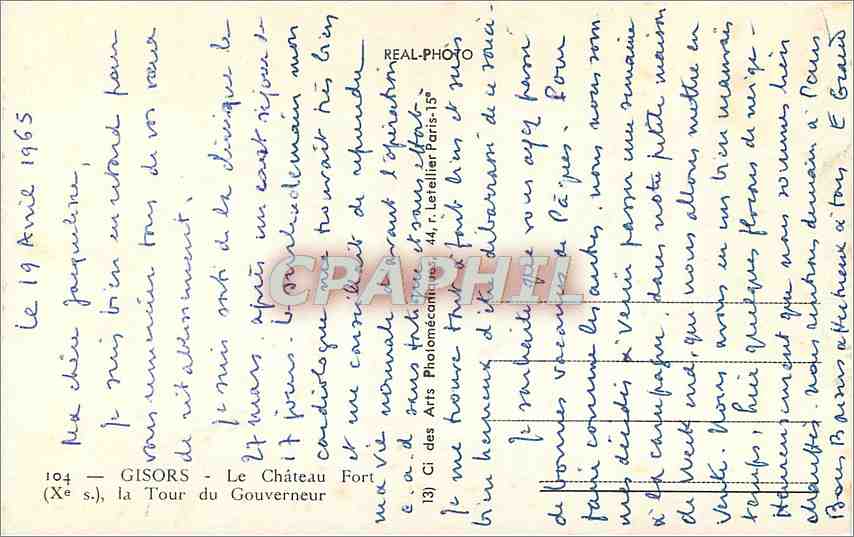 REAL-PHOTO
104 — GISORS - Le Château Fort
(Xe s.), la Tour du Gouverneur
13) Ci des Arts Photomécaniques, 44, r. Letellier Paris-15e
CPAPHIL
le 19 Avril 1965
Ma chère Jacqueline,
Je suis bien en retard pour
vous remercier tous de vos vœux
de rétablissement.
Je suis sorti de la clinique le
27 mars après un court séjour de
17 jours. Le surlendemain mon
cardiologue me trouvait très bien
et me conseillait de reprendre
ma vie normale d'avant l'opération
c.a.d sans fatigue et sans effort.
Je me trouve tout à fait bien et suis
bien heureux d'être débarrassé de ce souci-
Je souhaite que vous ayez passé
de bonnes vacances de Pâques. Pour
faire comme les autres, nous nous som
mes décidés à venir passer une semaine
à la campagne, dans notre petite maison
de Week end, que nous allons mettre en
vente. Nous avons eu un bien mauvais
temps, hier quelques flocons de neige-
Heureusement que nous sommes bien
chauffés. Nous rentrons demain à Paris
Bons Baisers affectueux à tous E Grand